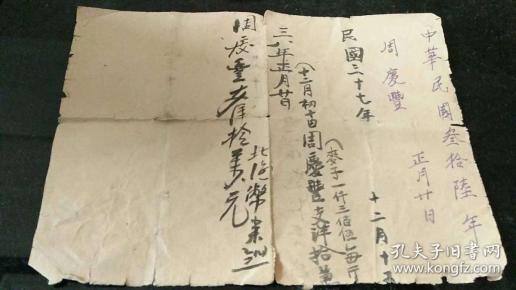 中華民國叁拾陸年
正月廿日
周慶豐
民國三十七年
十二月十五
(麥子一仟二佰伍每斤
(十二月初十日周慶豐支洋拾萬
三八年正月廿日
周慶豐支洋拾萬元
北海幣
孔夫子旧书网